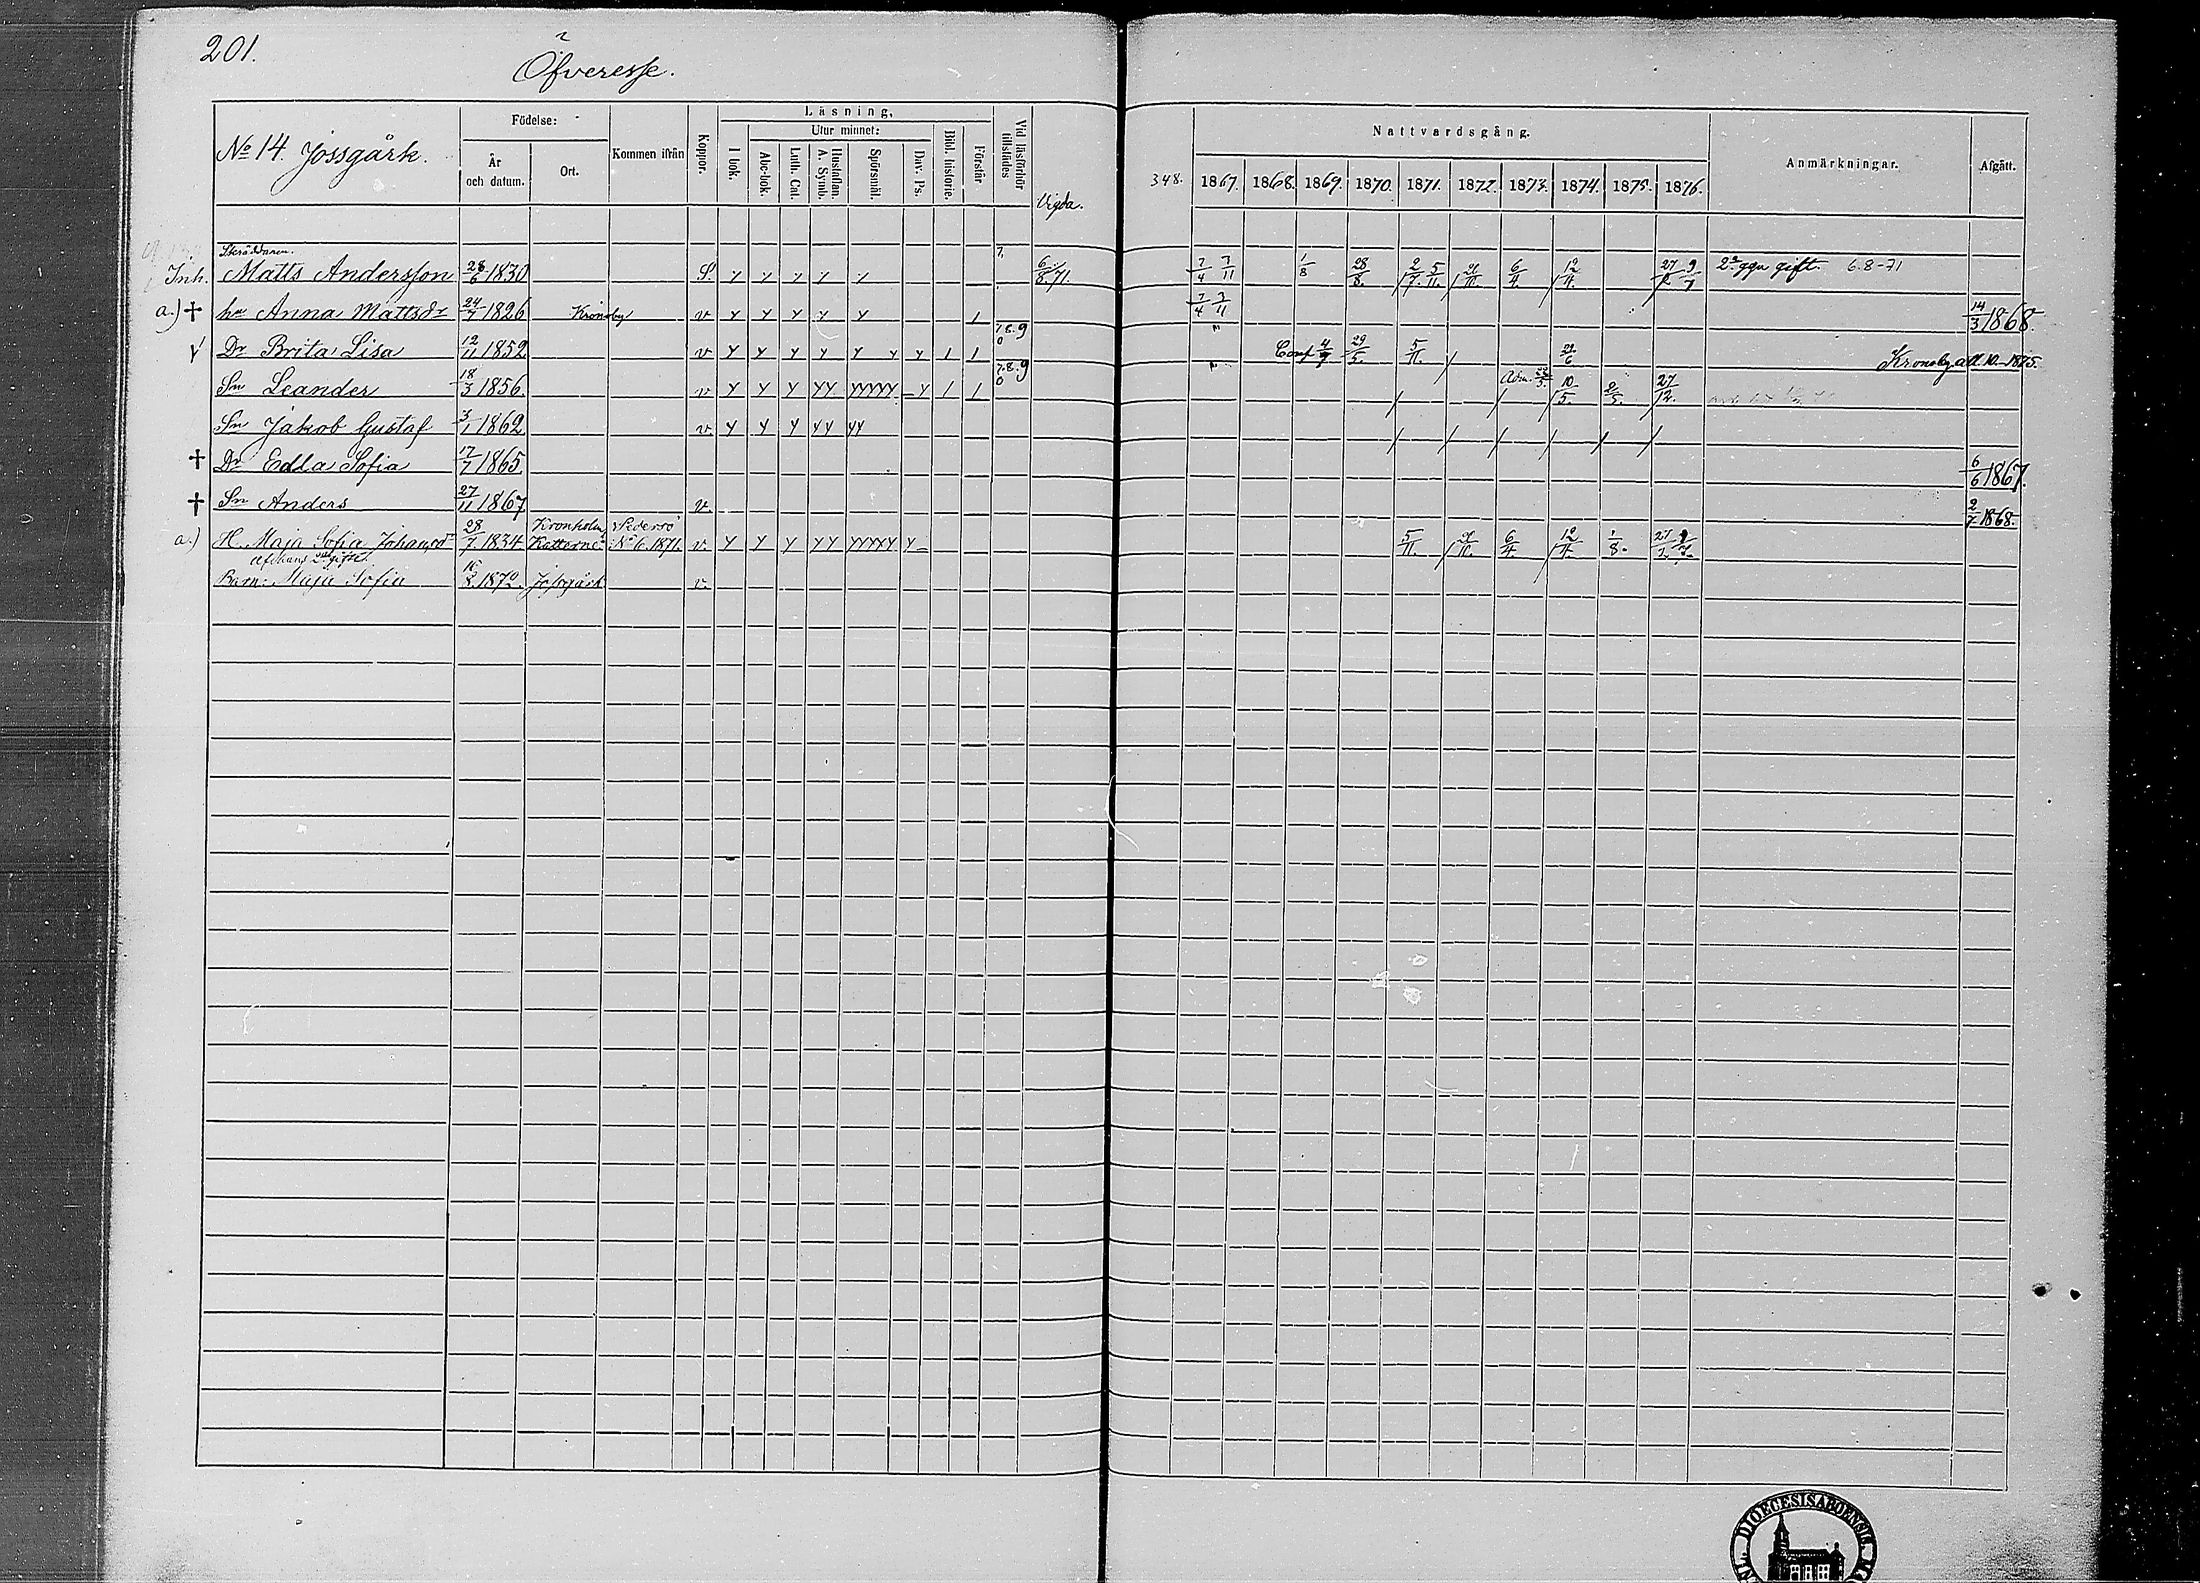 201.
Öfveresse.
No 14. Jossgårk.
Födelse:
År och datum.
Ort.
Kommen ifrån
Koppor.
Läsning.
I bok.
Utur minnet:
Abc-bok.
Luth. Cat.
Hustaflan. A. Symb.
Spörsmål.
Dav. Ps.
Bibl. historie.
Förstår
Vid läsförhör tillstädes
Vigda.
348.
Nattvardsgång.
1867. 1868. 1869. 1870. 1871. 1872. 1873. 1874. 1875. 1876.
Anmärkningar.
Afgått.
Skräddaren.
Inh. Matts Andersson 28/6 1830 S. y y y y y 6/8.71. 7/4 3/11 1/8 28/8. 5/11. 6/4 12/4. 2a ggn gift. 6.8-71
a.) † hu Anna Mattsdr 24/7 1826 Kronoby v y y y y y 1 7/4 3/11 14/3 1868.
Dr Brita Lisa 12/11 1852 v y y y y y y y 1 1 7.8.9 0 " Conf 4/7 29/5. 5/11. 29/6 Kronoby att. 10. 1875.
Sn Leander 18/3 1856. v y y y yy yyyyy y 1 1 7.8.9 0 " Adm. 10/5. 2/5. 27/12.
Sn Jakob Gustaf 3/1 1862 v. y y y yy yy
† Dr Edla Sofia 17/7 1865. 6/6 1867.
† Sn Anders 27/11 1867 v. 2/7 1868.
a.) H. Maja Sofia Johansdr 28/7 1834 Kronholm Katternö Pedersö No 6. 1871. v. y y y yy yyyyy y 5/11. 6/4 12/4. 1/8.
2a gifte
Barn: Maja Sofia 16/8. 1872. Jossgårk v.
DIOECESIS ABOENSIS